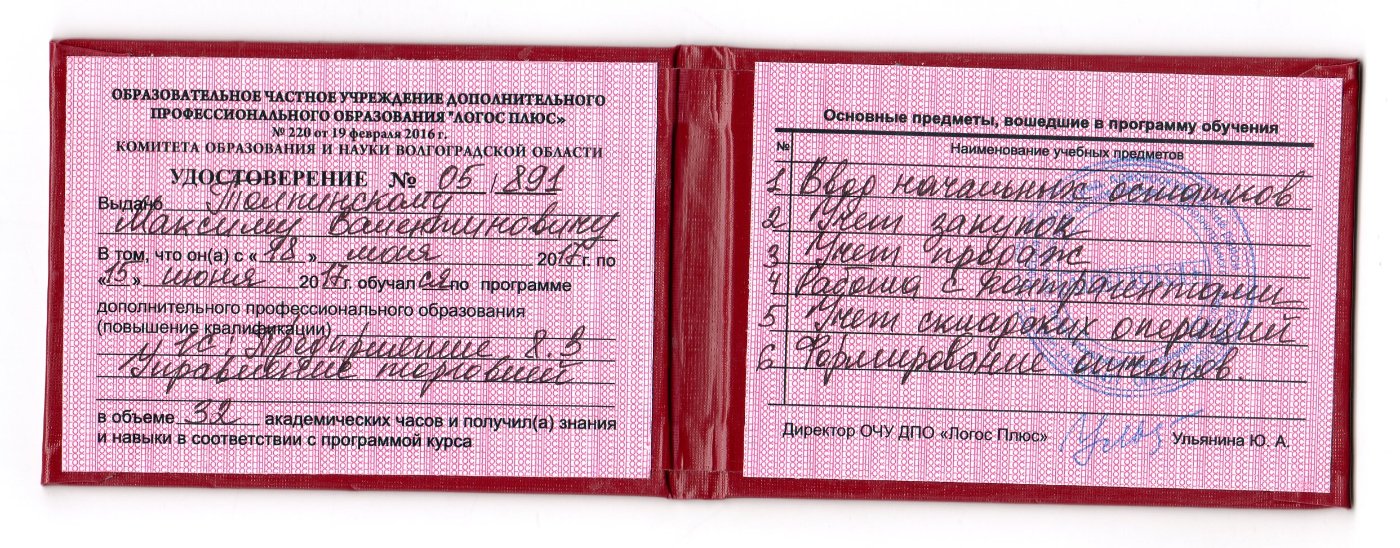 ОБРАЗОВАТЕЛЬНОЕ ЧАСТНОЕ УЧРЕЖДЕНИЕ ДОПОЛНИТЕЛЬНОГО
ПРОФЕССИОНАЛЬНОГО ОБРАЗОВАНИЯ "ЛОГОС ПЛЮС»
№ 220 от 19 февраля 2016 г.
КОМИТЕТА ОБРАЗОВАНИЯ И НАУКИ ВОЛГОГРАДСКОЙ ОБЛАСТИ
УДОСТОВЕРЕНИЕ № 05 / 891
Выдано Толпинскому
Максиму Валентиновичу
В том, что он(а) с « 18 » мая 2017 г. по
«15» июня 2017 г. обучался по программе
дополнительного профессионального образования
(повышение квалификации)
1С: Предприятие 8.3
Управление торговлей
в объеме 32 академических часов и получил(а) знания
и навыки в соответствии с программой курса
Основные предметы, вошедшие в программу обучения
№ Наименование учебных предметов
1 Ввод начальных остатков
2 Учет закупок
3 Учет продаж
4 Работа с контрагентами
5 Учет складских операций
6 Формирование отчетов.
Директор ОЧУ ДПО «Логос Плюс» Ульянина Ю. А.